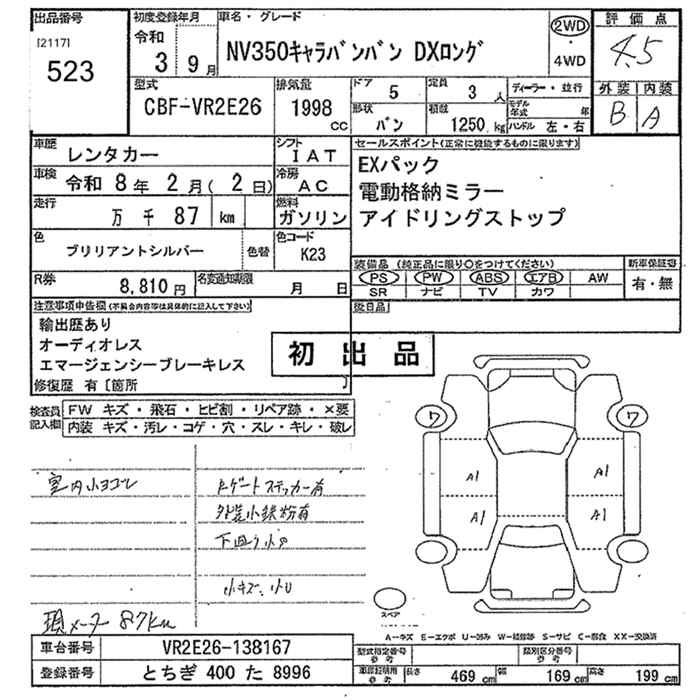 出品番号
[2117]
523
初度登録年月
令和
3 9月
車名・グレード
NV350キャラバンバン DXロング
2WD
・
4WD
評価点
4.5
型式
CBF-VR2E26
排気量
1998
CC
ドア
5
定員
3 人
形状
バン
積載
1250 kg
ディーラー・並行
モデル年式 年
ハンドル 左・右
外装 内装
B A
車歴
レンタカー
シフト
IAT
車検
令和 8年 2月( 2日)
冷房
AC
走行
万 千 87 km
燃料
ガソリン
色
ブリリアントシルバー
色替
色コード
K23
R券
8,810円
名変通知期限
月 日
セールスポイント(正常に機能するものに限ります)
EXパック
電動格納ミラー
アイドリングストップ
装備品 (純正品に限り○をつけてください)
PS PW ABS エアB AW
SR ナビ TV カワ
新車保証書
有・無
後日品
注意事項申告欄(不具合内容等は具体的に記入して下さい)
輸出歴あり
オーディオレス
エマージェンシーブレーキレス
修復歴 有〔箇所 〕
初出品
検査員記入欄
FW キズ・飛石・ヒビ割・リペア跡・×要
内装 キズ・汚レ・コゲ・穴・スレ・キレ・破レ
室内小ヨゴレ
Rゲートステッカー有
外装小鉄粉有
下回り小サ
小キズ、小U
現メーター 87km
ワ ワ
A1 A1
A1 A1
スペア
A-キズ E-エクボ U-凹み W-補修跡 S-サビ C-腐食 XX-交換済
車台番号
VR2E26-138167
登録番号
とちぎ 400 た 8996
型式指定番号
参考
類別区分番号
参考
車庫証明用
参考
長さ 469 cm 幅 169 cm 高さ 199 cm